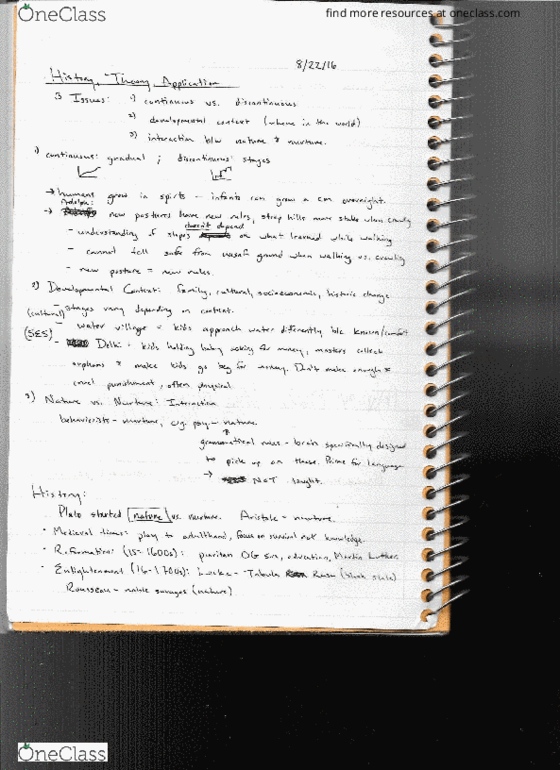 OneClass
find more resources at oneclass.com
8/22/16
History, Theory, Application
3 Issues: 1) continuous vs. discontinuous
2) developmental context (where in the world)
3) interaction b/w nature & nurture.
1) continuous: gradual ; discontinuous: stages
→ humans grow in spirts - infants can grow a cm overnight.
Adolph:
→ new postures have new rules, steep hills more stable when crawling
doesn't depend
- understanding of slopes on what learned while walking
- cannot tell safe from unsafe ground when walking vs. crawling
- new posture = new rules.
2) Developmental Context: family, cultural, socioeconomic, historic change
(cultural) - stages vary depending on context.
- water village = kids approach water differently b/c known/comfort
(SES) - Delhi = kids holding baby asking for money, masters collect
orphans & make kids go beg for money. Don't make enough =
cruel punishment, often physical.
3) Nature vs. Nurture: Interaction
behaviorists - nurture, nature.
grammatical rules - brain specifically designed
to pick up on these. Prime for language
→ NOT taught.
History:
Plato started nature vs. nurture. Aristotle - nurture.
• Medieval times: play to adulthood, focus on survival not knowledge.
• Reformation: (15-1600s): puritan OG sin, education, Martin Luther
• Enlightenment (16-1700s): Locke - Tabula Rasa (blank slate)
Rousseau - noble savages (nature)
OneClass